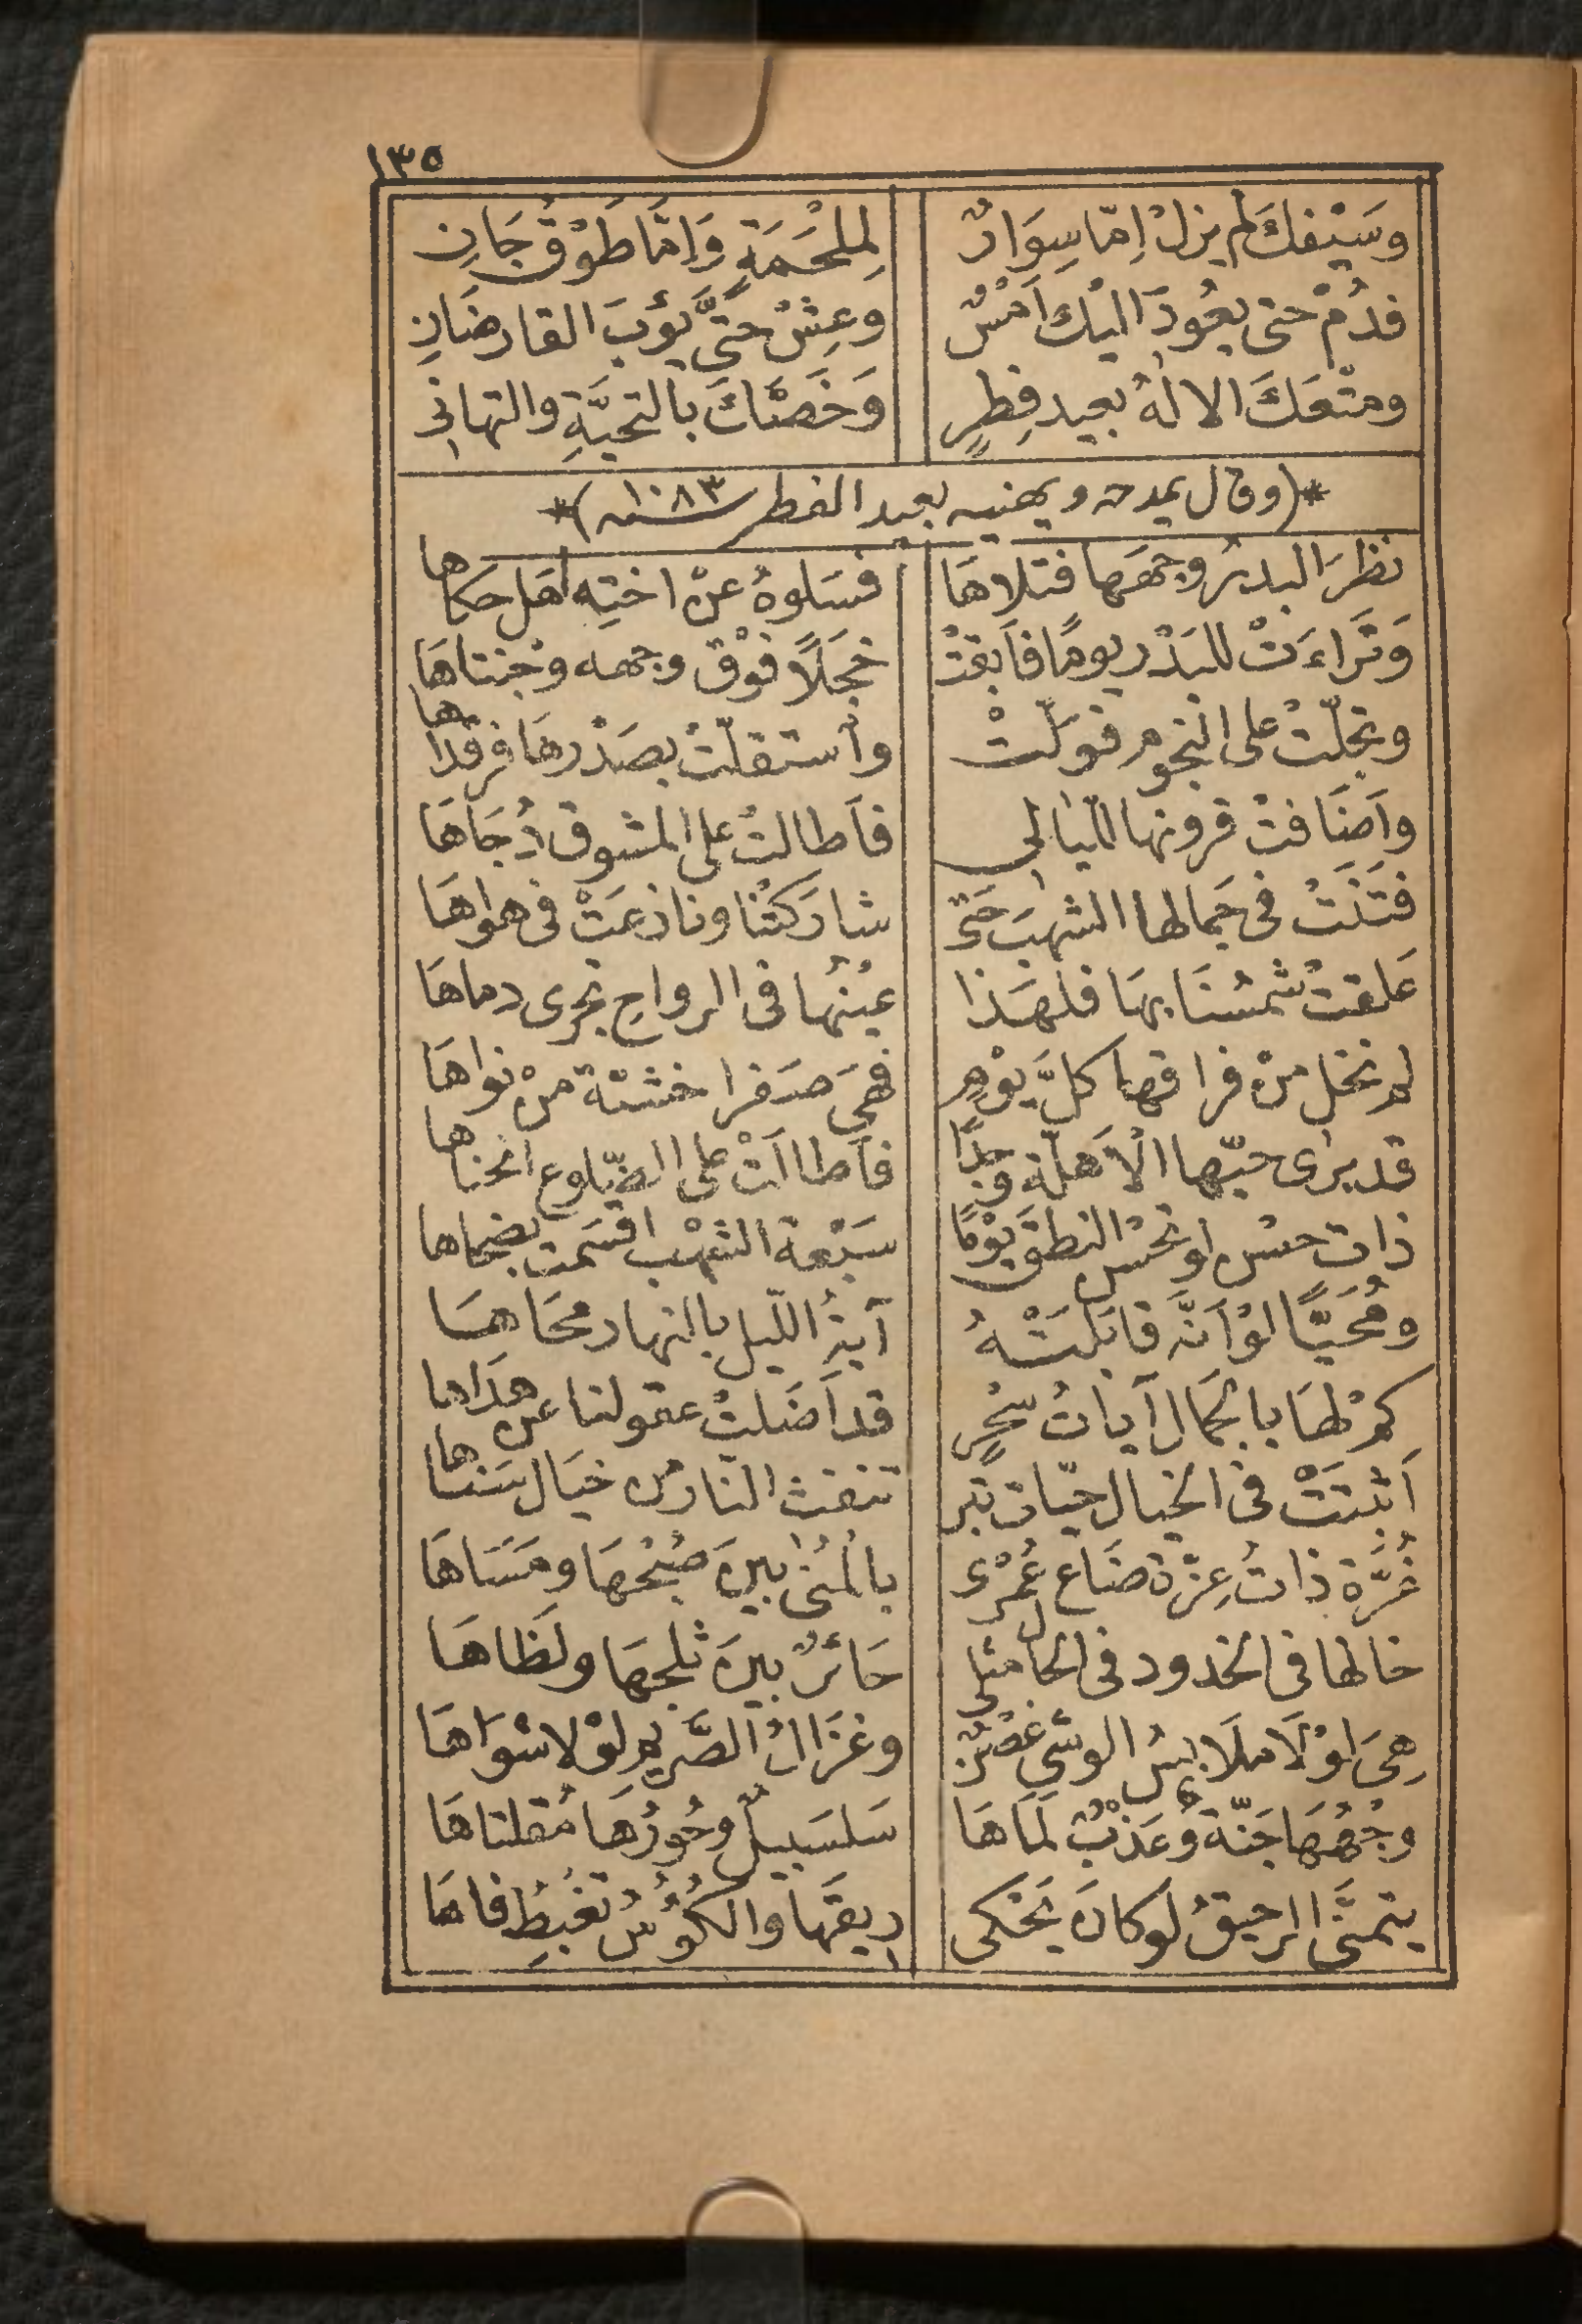 ١٣٥
وَسَيْفكَ لم يزلْ اِمّا سِوَارٌ لِملْحَمَةٍ وَاِمَّا طَوْقُ جَانِ
فدُمْ حتى يعُودَ اليْكَ اَمْسٌ وَعِشْ حَتَّى يَؤُبَ القارضَانِ
ومتّعَكَ الالٰهُ بعيد فِطرٍ وَخَصَّكَ بالتحيَّةِ والتهانِى
*(وقال يمدحه ويهنيه بعيد الفطر سنة ١٠٨٣)*
نظرَ البدرُ وجهَها فتلاهَا فسَلوهُ عنْ اختِه اهَل حكاها
وَتَراءَتْ للبَدْر يومًا فاَبقتْ خجَلاً فوْق وجهه وجْنتاهَا
وتجلّتْ على النجوم فولّتْ واْستقلّتْ بصَدْرهَا فرقداها
واَضَافتْ قرونها الليٰالِى فاَطالتْ على المشوق دُجَاهَا
فتَنَتْ فى جَمالها الشهبَ حَتى شارَكتْنا ونازعَتْ فى هواهَا
عَلقتْ شمسُنَا بهَا فلهَذا عيْنهُا فى الرواح تجرى دماهَا
لم تخل منْ فراقها كلَّ يوْمٍ فهىَ صَفرا خشيَة منْ نواهَا
قد يرٰى حبّها الْاَهلّة وَجْدًا فاَطالتْ على الضّلوع انحناها
ذات حسْن لو تحسْن النطقَ يوْمًا سَبْعة الشهْب اقسَمت بضحاها
ومُحَيًّا لوْ اَنَّه قابَلتْهُ آيةُ اللّيل بالنهار محَاهَا
كمْ لهَا بالجمَال آياتُ سِحْرٍ قد اَضَلتْ عقولنا عن هدَاها
اَثبتَتْ فى الخيال حيّات تبر تنفث النار من خيَال سَناها
غُرَّة ذاتُ عِزّة ضَاع عُمْرى بالْمُنٰى بينَ صُبْحهَا ومَسَاهَا
خالها فى الخدود فى الحال مثلى حَائرٌ بينَ ثلجهَا ولَظاهَا
هِىَ لوْلَا ملَابسُ الوشىِ غصْنٌ وغزَالُ الصَّريمِ لوْلا شوَاهَا
وجْهُهَا جَنّة وَعَذبٌ لَمَاهَا سَلسَبيلٌ وحُورُهَا مُقلتاهَا
يتمنَّى الرحيقُ لوكانَ يَحْكى ريقَهَا والكُؤُسُ تغبِطُ فاهَا